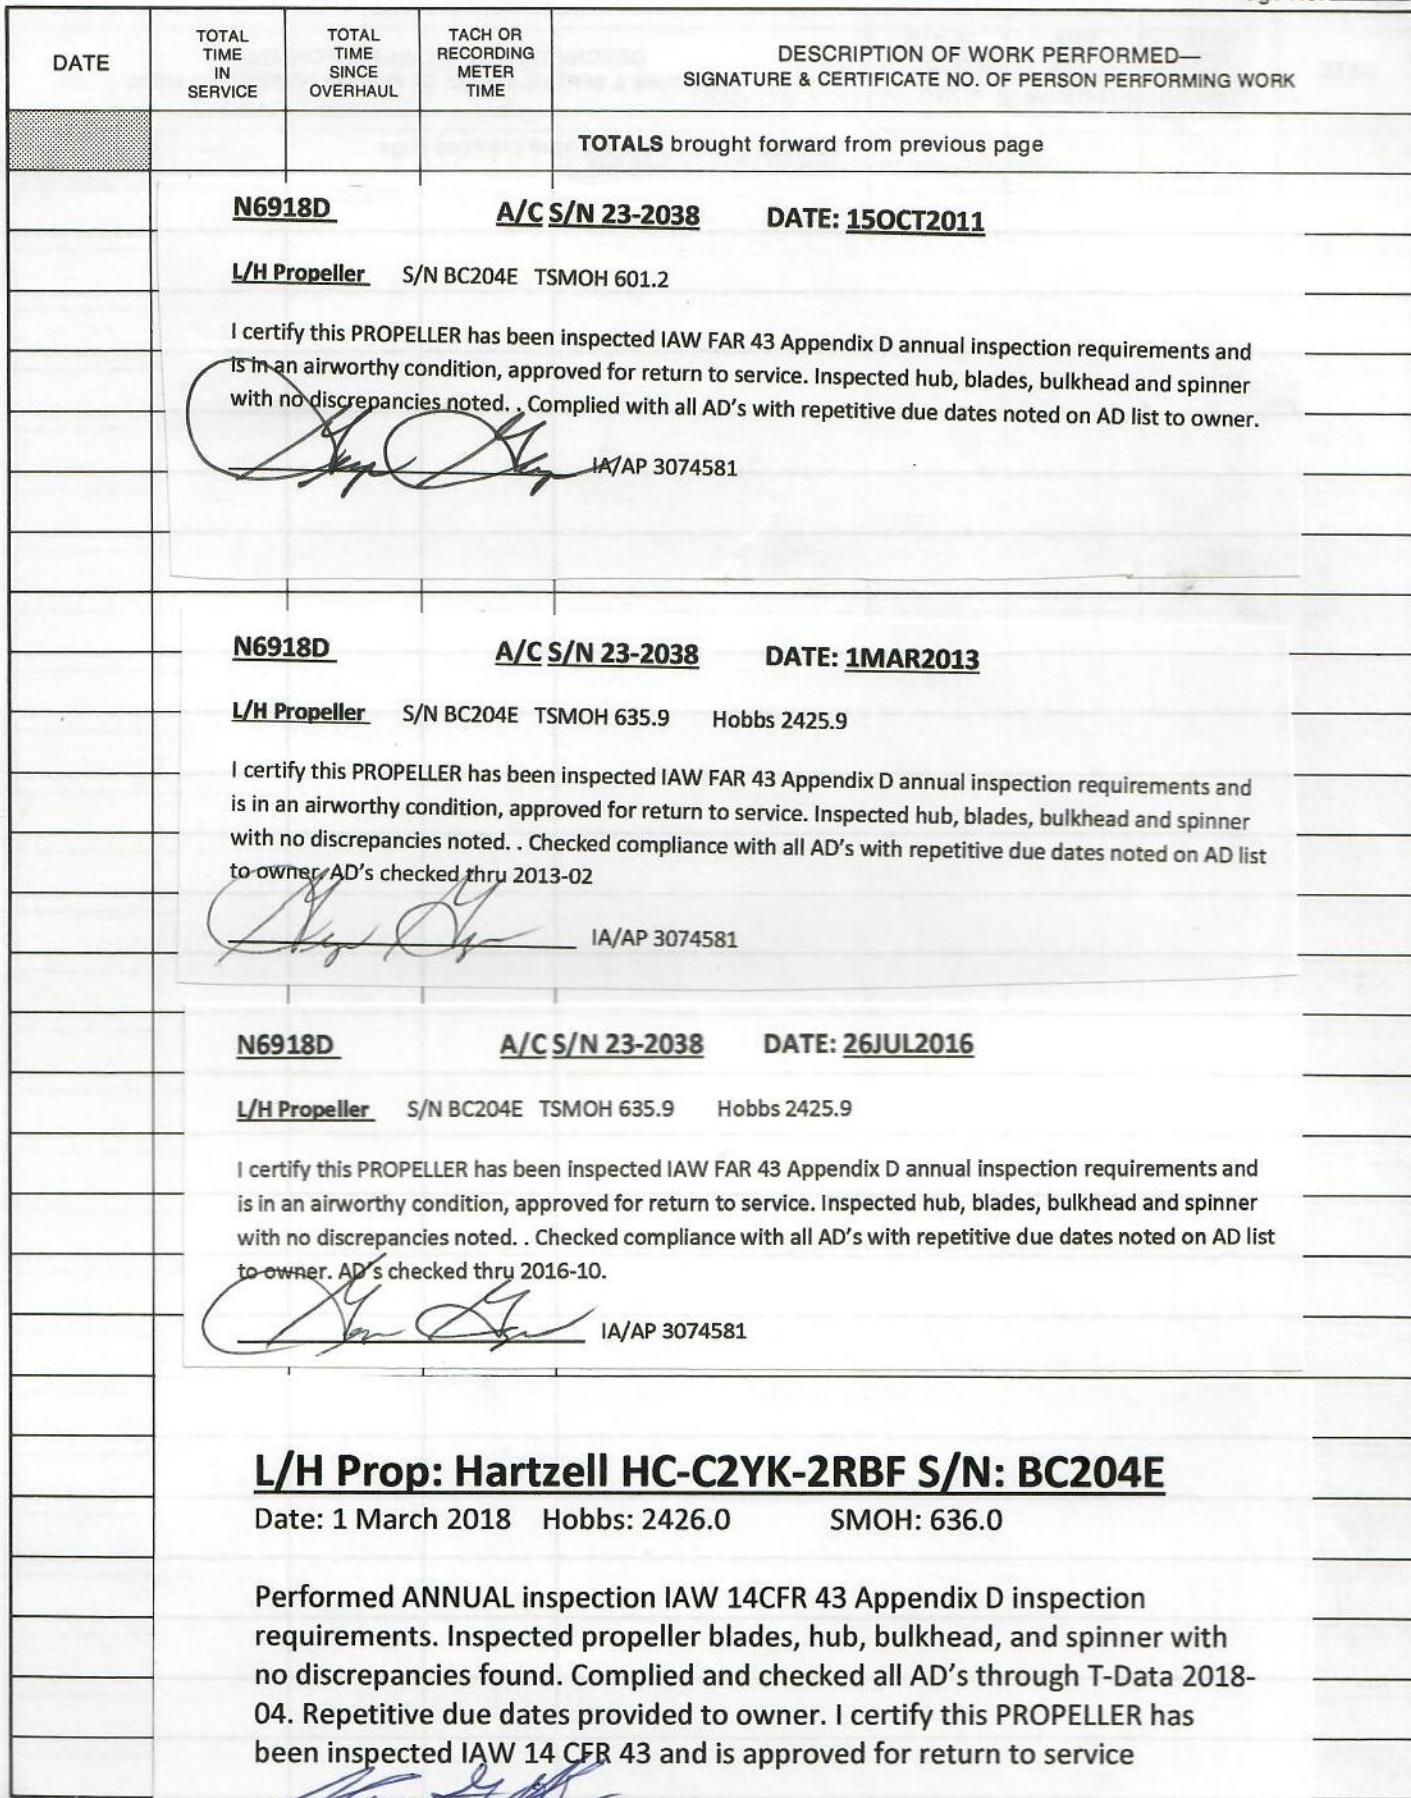 DATE
TOTAL
TIME
IN
SERVICE
TOTAL
TIME
SINCE
OVERHAUL
TACH OR
RECORDING
METER
TIME
DESCRIPTION OF WORK PERFORMED—
SIGNATURE & CERTIFICATE NO. OF PERSON PERFORMING WORK
TOTALS brought forward from previous page
N6918D A/C S/N 23-2038 DATE: 15OCT2011
L/H Propeller S/N BC204E TSMOH 601.2
I certify this PROPELLER has been inspected IAW FAR 43 Appendix D annual inspection requirements and
is in an airworthy condition, approved for return to service. Inspected hub, blades, bulkhead and spinner
with no discrepancies noted. . Complied with all AD's with repetitive due dates noted on AD list to owner.
IA/AP 3074581
N6918D A/C S/N 23-2038 DATE: 1MAR2013
L/H Propeller S/N BC204E TSMOH 635.9 Hobbs 2425.9
I certify this PROPELLER has been inspected IAW FAR 43 Appendix D annual inspection requirements and
is in an airworthy condition, approved for return to service. Inspected hub, blades, bulkhead and spinner
with no discrepancies noted. . Checked compliance with all AD's with repetitive due dates noted on AD list
to owner. AD's checked thru 2013-02
IA/AP 3074581
N6918D A/C S/N 23-2038 DATE: 26JUL2016
L/H Propeller S/N BC204E TSMOH 635.9 Hobbs 2425.9
I certify this PROPELLER has been inspected IAW FAR 43 Appendix D annual inspection requirements and
is in an airworthy condition, approved for return to service. Inspected hub, blades, bulkhead and spinner
with no discrepancies noted. . Checked compliance with all AD's with repetitive due dates noted on AD list
to owner. AD's checked thru 2016-10.
IA/AP 3074581
L/H Prop: Hartzell HC-C2YK-2RBF S/N: BC204E
Date: 1 March 2018 Hobbs: 2426.0 SMOH: 636.0
Performed ANNUAL inspection IAW 14CFR 43 Appendix D inspection
requirements. Inspected propeller blades, hub, bulkhead, and spinner with
no discrepancies found. Complied and checked all AD's through T-Data 2018-
04. Repetitive due dates provided to owner. I certify this PROPELLER has
been inspected IAW 14 CFR 43 and is approved for return to service